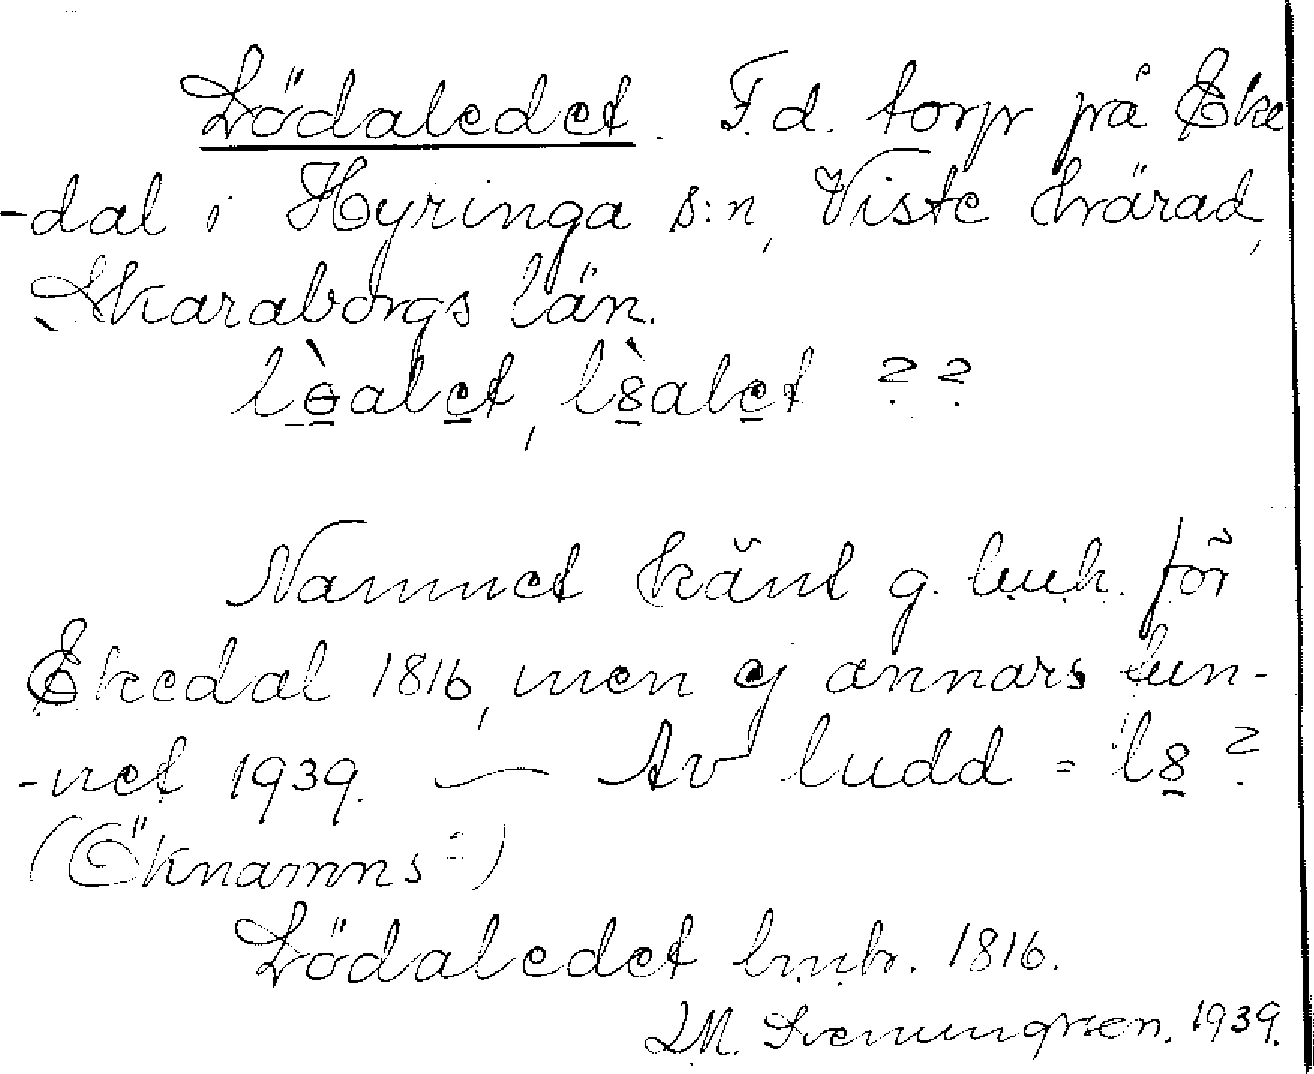 Lödaledet. F.d. torp på Eke
-dal i Hyringa s:n, Viste härad,
Skaraborgs län.
lòalet, l8̀alet ??
Namnet känt g. lmh. för
Ekedal 1816, men ej annars fun-
-net 1939. — Av ludd = l8?
(Öknamns-)
Lödaledet lmh. 1816.
D.M. Svenungsson. 1939.